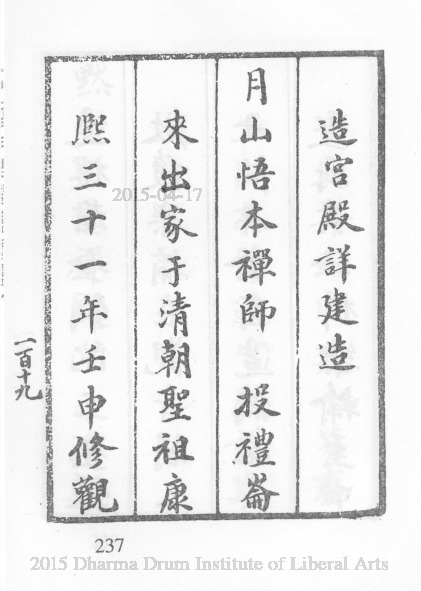 造宮殿詳建造
月山悟本禪師 投禮崙
來出家于清朝聖祖康
熙三十一年壬申修觀
一百十九
237
2015-04-17
2015 Dharma Drum Institute of Liberal Arts